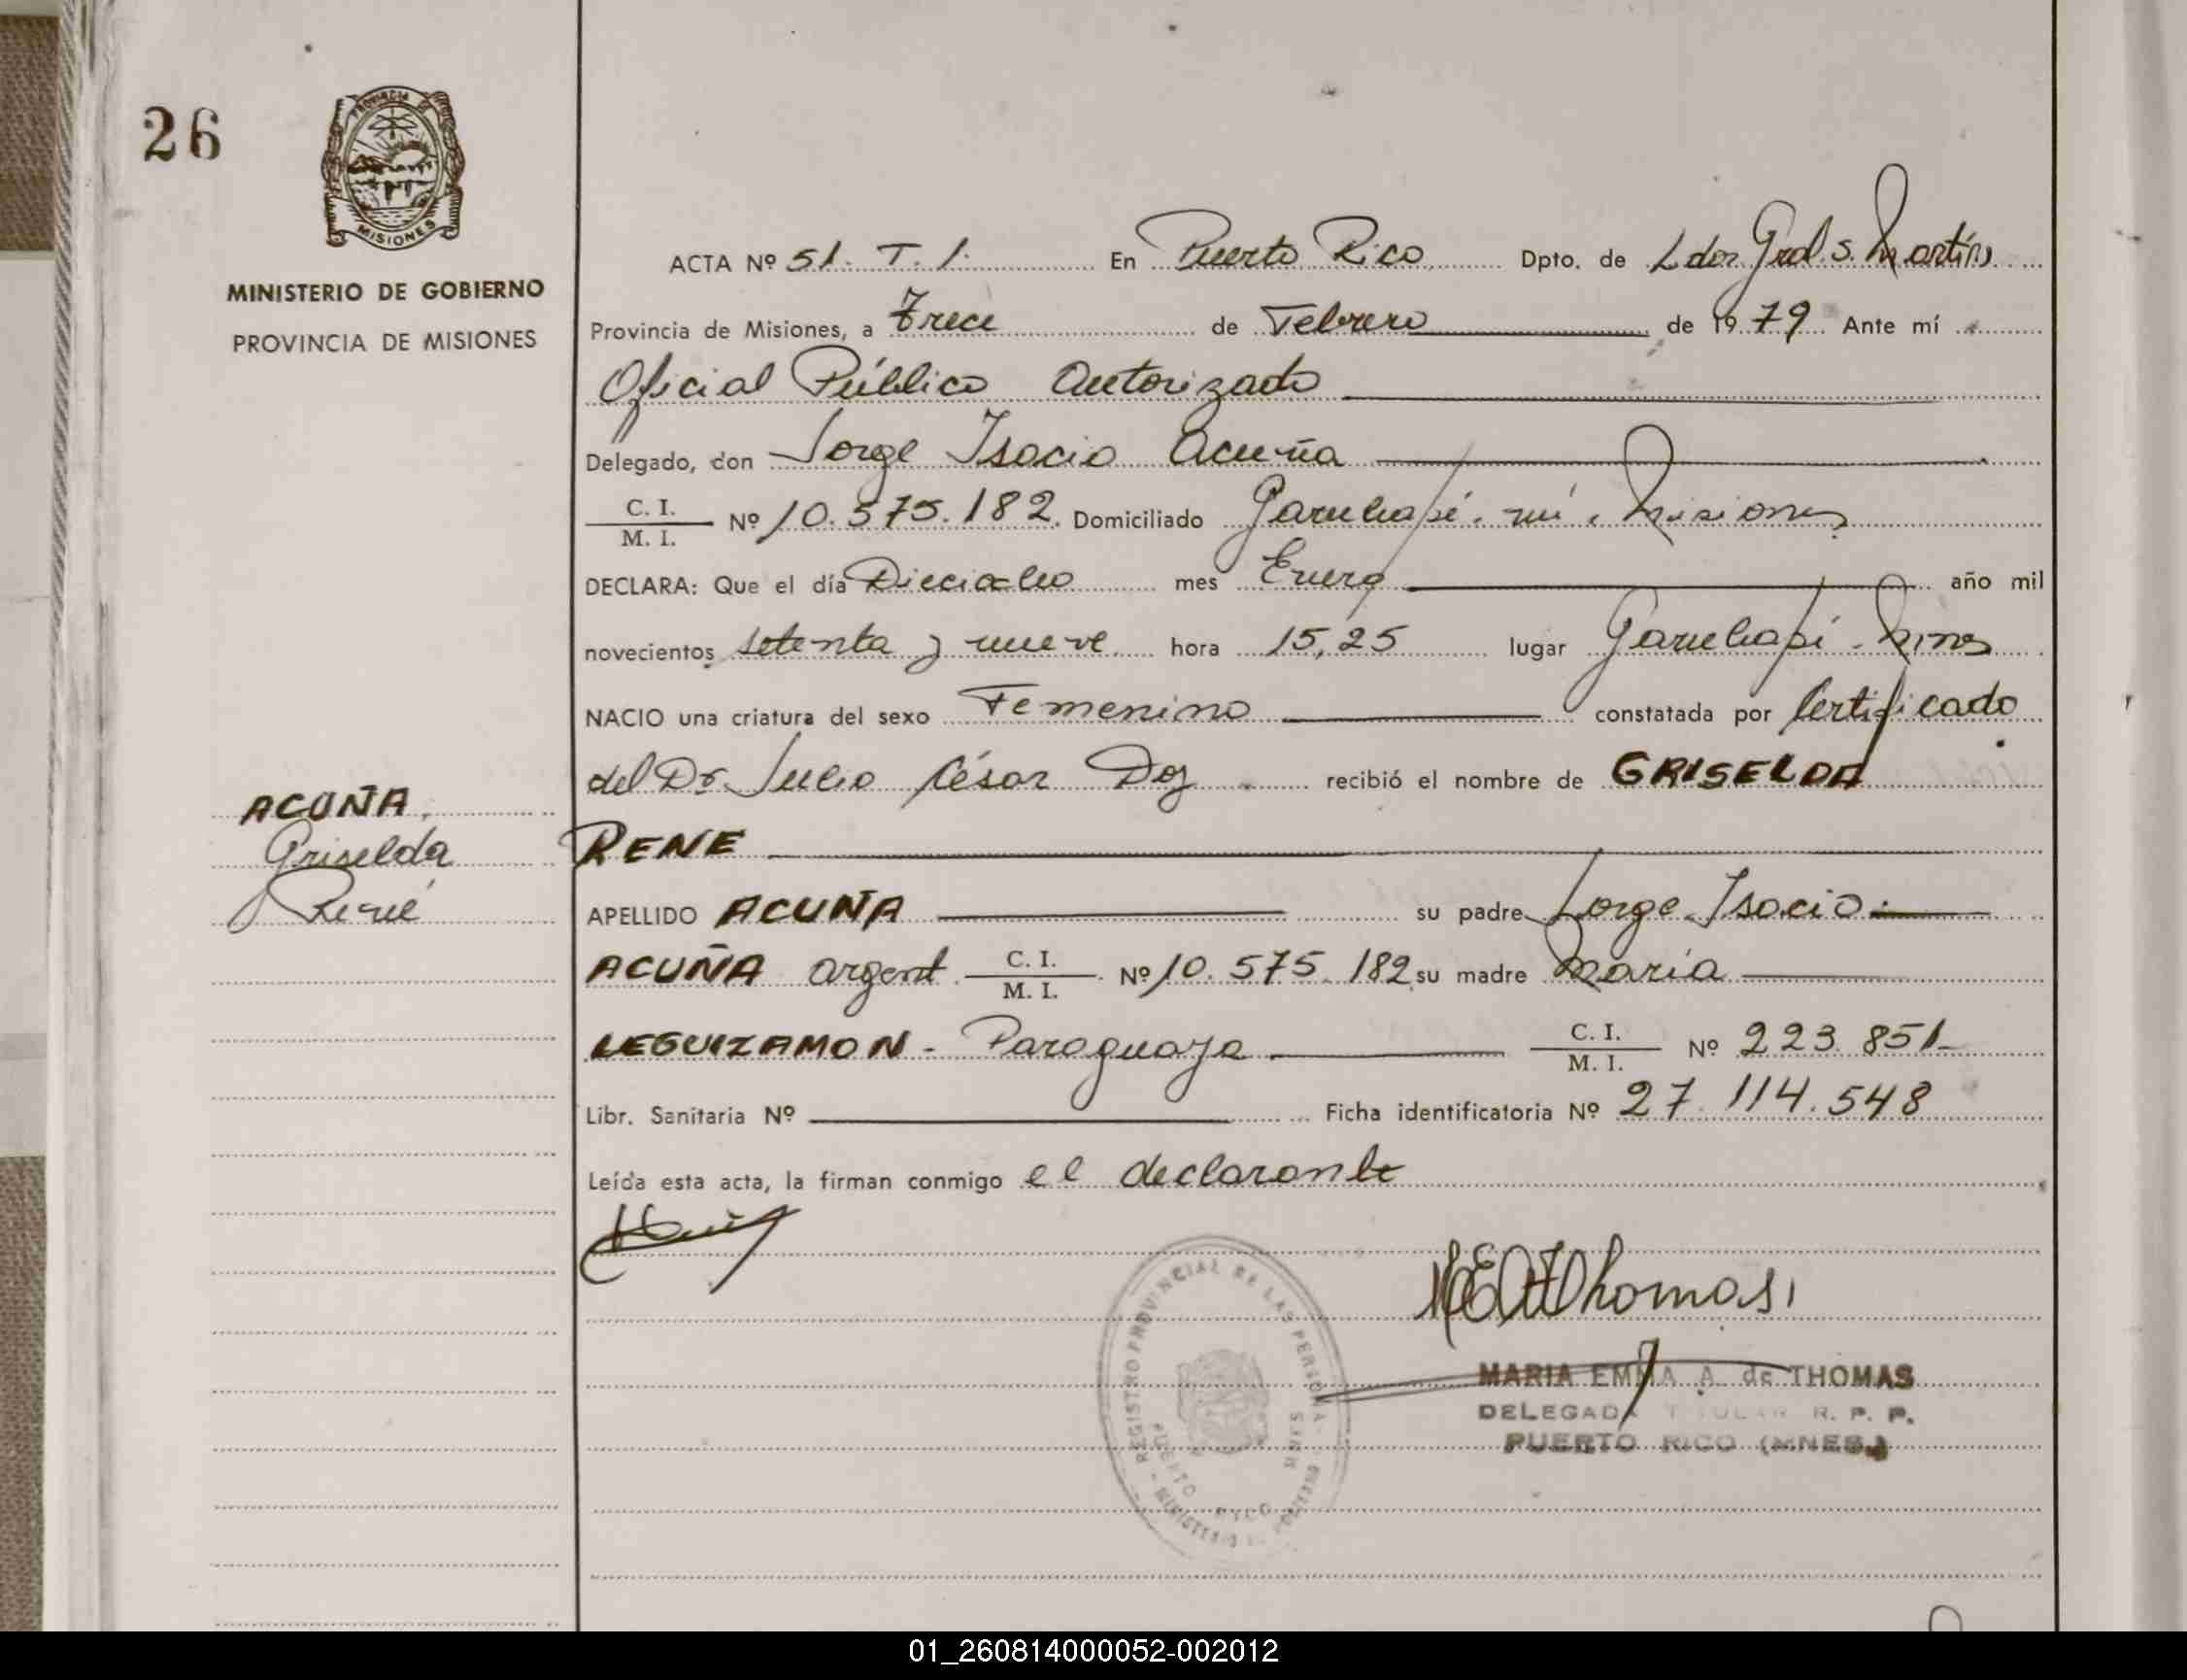 26
PROVINCIA D
MISIONES
MINISTERIO DE GOBIERNO
PROVINCIA DE MISIONES
ACTA Nº 51. T. 1. En Puerto Rico Dpto. de Ldor Gral. S. Martín
Provincia de Misiones, a Trece de Febrero de 1979 Ante mí
Oficial Público Autorizado
Delegado, don Jorge Isacio Acuña
C. I. / M. I. Nº 10.575.182. Domiciliado Garuhapé-mí. Misiones
DECLARA: Que el día Dieciocho mes Enero año mil
novecientos setenta y nueve hora 15,25 lugar Garuhapé. Mnes
NACIO una criatura del sexo Femenino constatada por Certificado
del Dr. Julio César Doz recibió el nombre de GRISELDA
RENE
APELLIDO ACUÑA su padre Jorge Isacio
ACUÑA argent. C. I. / M. I. Nº 10.575.182 su madre María
LEGUIZAMON - Paraguaya C. I. / M. I. Nº 223.851
Libr. Sanitaria Nº Ficha identificatoria Nº 27.114.548
Leída esta acta, la firman conmigo el declarante
ACUÑA,
Griselda
René
Thomas
REGISTRO PROVINCIAL DE LAS PERSONAS
PUERTO RICO MNES
MARIA EMMA A. de THOMAS
DELEGADA TITULAR R. P. P.
PUERTO RICO (MNES.)
01_260814000052-002012